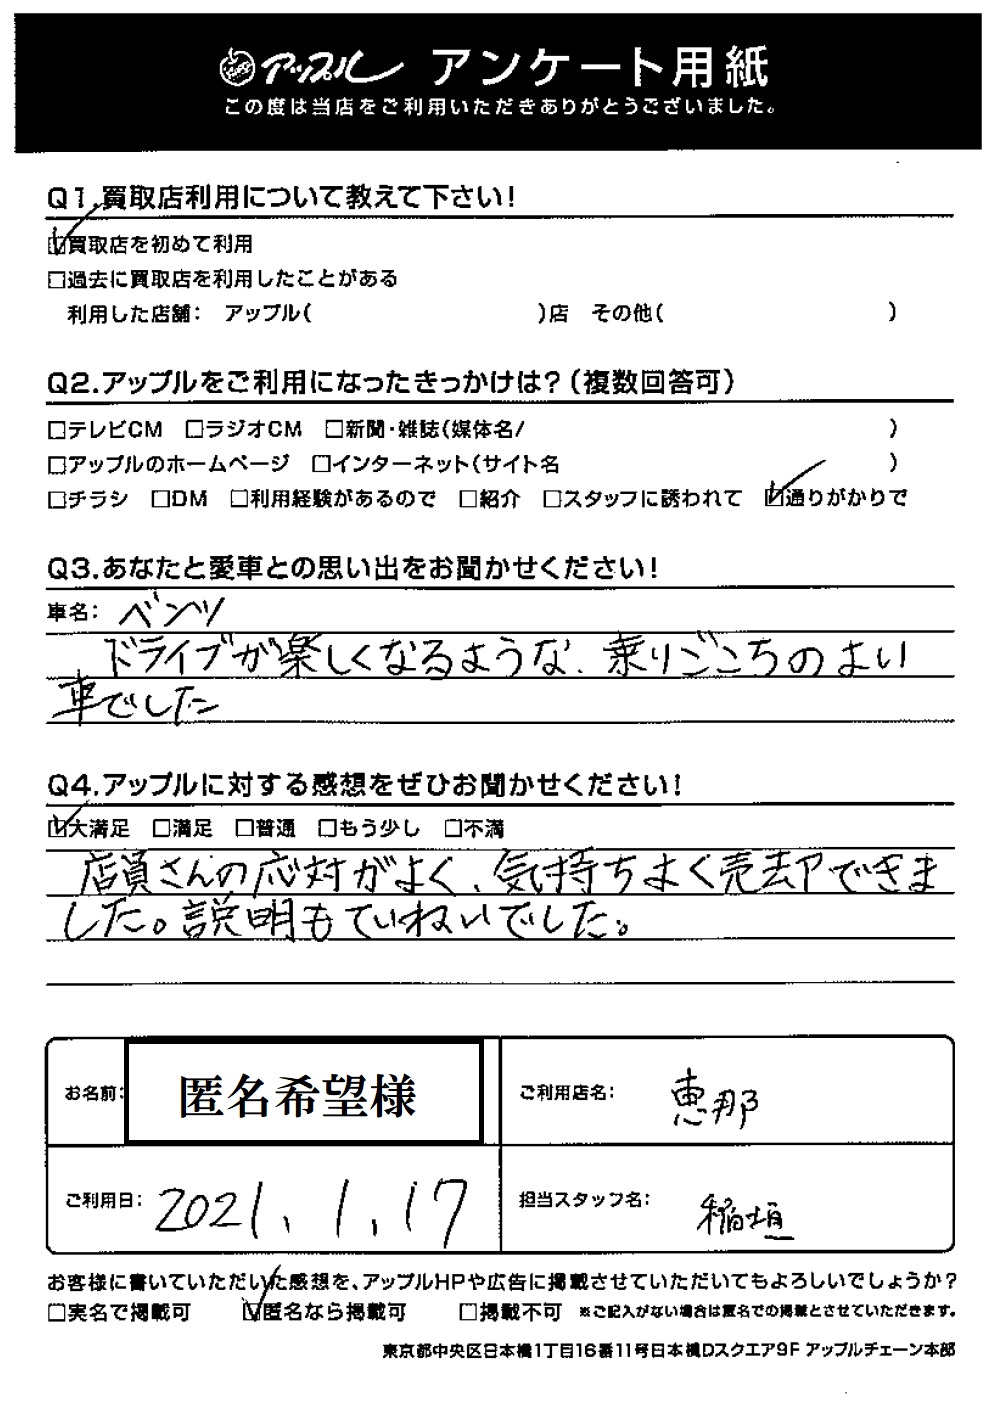 アップル アンケート用紙
この度は当店をご利用いただきありがとうございました。
Q1.買取店利用について教えて下さい!
☑買取店を初めて利用
□過去に買取店を利用したことがある
利用した店舗: アップル( )店 その他( )
Q2.アップルをご利用になったきっかけは?(複数回答可)
□テレビCM □ラジオCM □新聞・雑誌(媒体名/ )
□アップルのホームページ □インターネット(サイト名 )
□チラシ □DM □利用経験があるので □紹介 □スタッフに誘われて ☑通りがかりで
Q3.あなたと愛車との思い出をお聞かせください!
車名: ベンツ
ドライブが楽しくなるような、乗りごこちのよい
車でした
Q4.アップルに対する感想をぜひお聞かせください!
☑大満足 □満足 □普通 □もう少し □不満
店員さんの応対がよく、気持ちよく売却できま
した。説明もていねいでした。
お名前: 匿名希望様 ご利用店名: 恵那
ご利用日: 2021.1.17 担当スタッフ名: 稲垣
お客様に書いていただいた感想を、アップルHPや広告に掲載させていただいてもよろしいでしょうか?
□実名で掲載可 ☑匿名なら掲載可 □掲載不可 ※ご記入がない場合は匿名での掲載とさせていただきます。
東京都中央区日本橋1丁目16番11号日本橋Dスクエア9F アップルチェーン本部